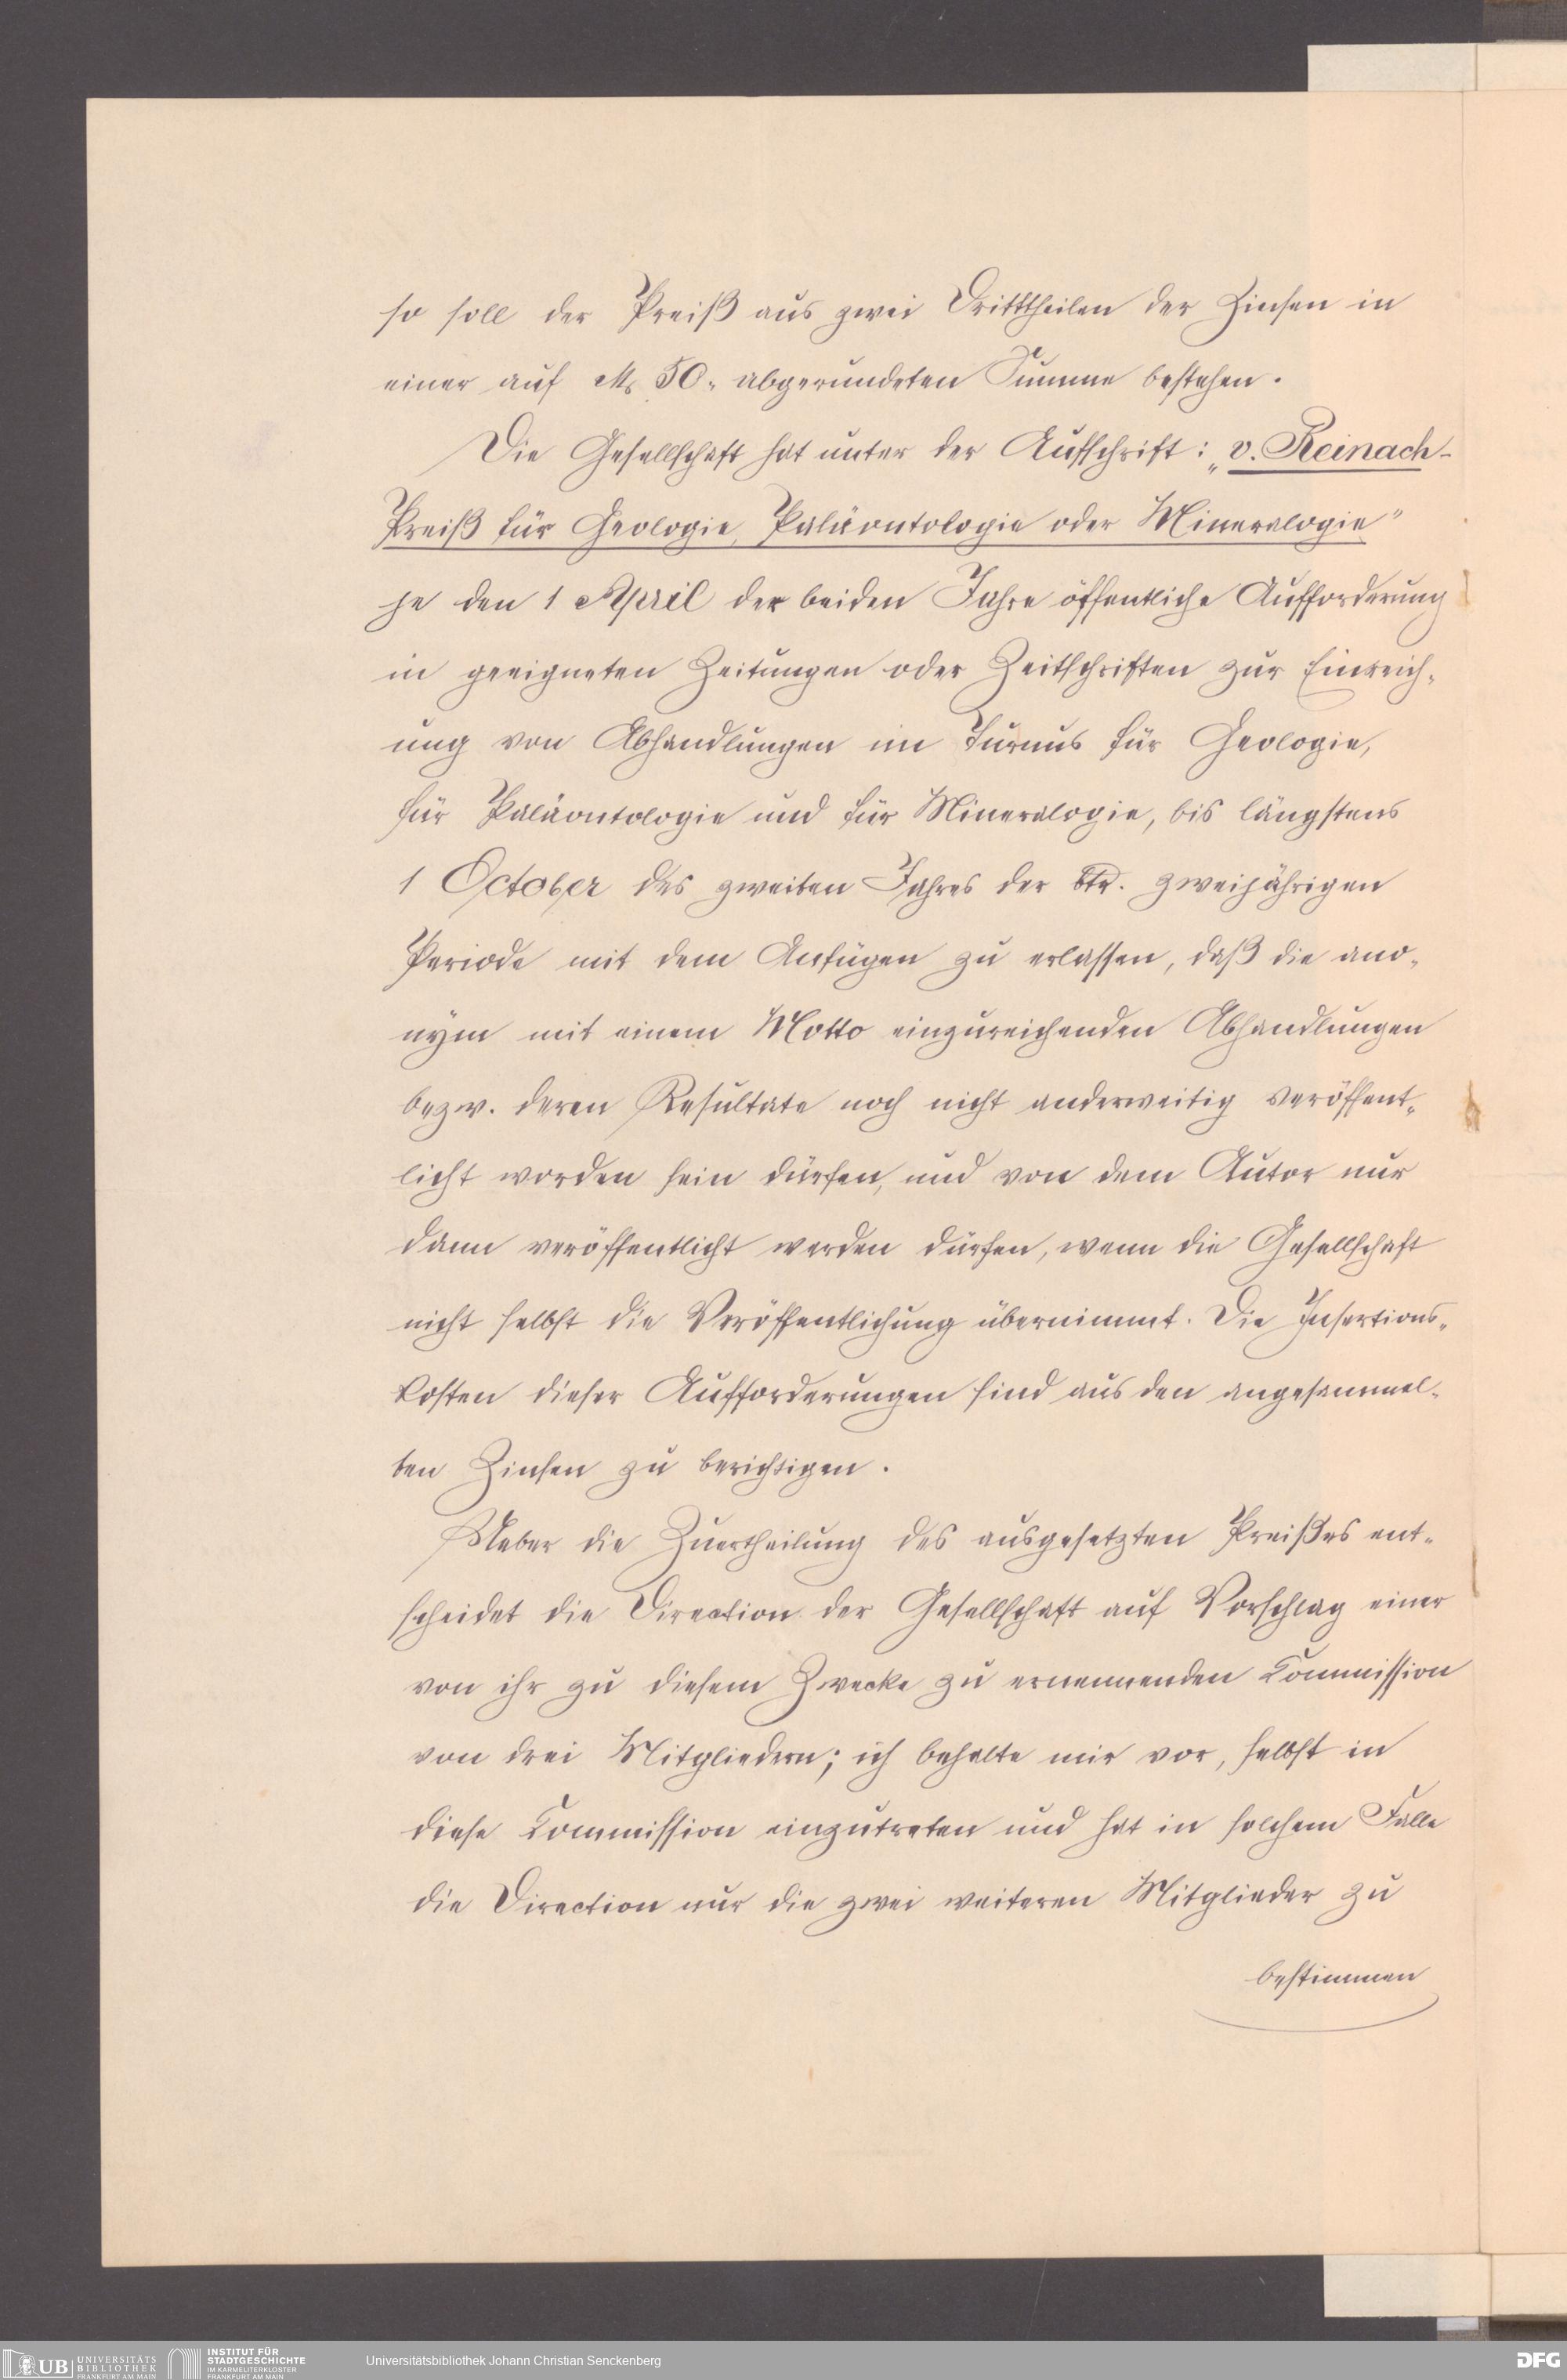 so soll der Preiß aus zwei Dritttheilen der Zinsen in
einer auf M 50. abgerundeten Summe bestehen.
Die Gesellschaft hat unter der Aufschrift: „v. Reinach-
Preiß für Geologie, Paläontologie oder Mineralogie"
je den 1 April der beiden Jahre öffentliche Aufforderung
in geeigneten Zeitungen oder Zeitschriften zur Einreich-
ung von Abhandlungen im Turnus für Geologie,
für Paläontologie und für Mineralogie, bis längstens
1 October des zweiten Jahres der btr. zweijährigen
Periode mit dem Anfügen zu erlassen, daß die ano-
nym mit einem Motto einzureichenden Abhandlungen
bezw. deren Resultate noch nicht anderweitig veröffent-
licht worden sein dürfen, und von dem Autor nur
dann veröffentlicht werden dürfen, wenn die Gesellschaft
nicht selbst die Veröffentlichung übernimmt. Die Insertions-
kosten dieser Aufforderungen sind aus den angesammel-
ten Zinsen zu berichtigen.
Ueber die Zuertheilung des ausgesetzten Preißes ent-
scheidet die Direction der Gesellschaft auf Vorschlag einer
von ihr zu diesem Zwecke zu ernennenden Commission
von drei Mitgliedern; ich behalte mir vor, selbst in
diese Commission einzutreten und hat in solchem Falle
die Direction nur die zwei weiteren Mitglieder zu
bestimmen
UB UNIVERSITÄTS
BIBLIOTHEK
FRANKFURT AM MAIN
INSTITUT FÜR
STADTGESCHICHTE
IM KARMELITERKLOSTER
FRANKFURT AM MAIN
Universitätsbibliothek Johann Christian Senckenberg
DFG